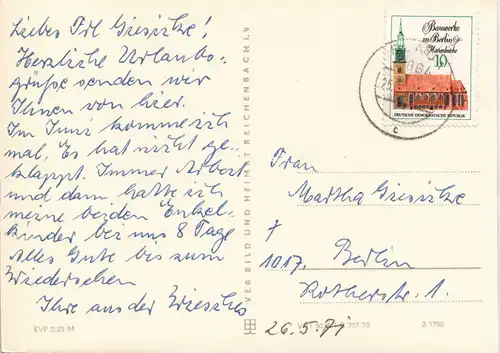 Liebes Frl Giesicke!
Herzliche Urlaubs-
grüße senden wir
Ihnen von hier.
Im Juni komme ich
mal. Es hat nicht ge-
klappt. Immer Arbeit
und dann hatte ich
meine beiden Enkel-
kinder bei uns 8 Tage
Alles Gute bis zum
Wiedersehen
Ihre aus der
EVP 0,25 M
VEB BILD UND HEIMAT REICHENBACH I.V.
Bauwerke
in Berlin
Marienkirche
10
DEUTSCHE DEMOKRATISCHE REPUBLIK
c
Frau
Martha Giesicke
1017 Berlin
Rotherstr. 1.
26.5.71
2.1760